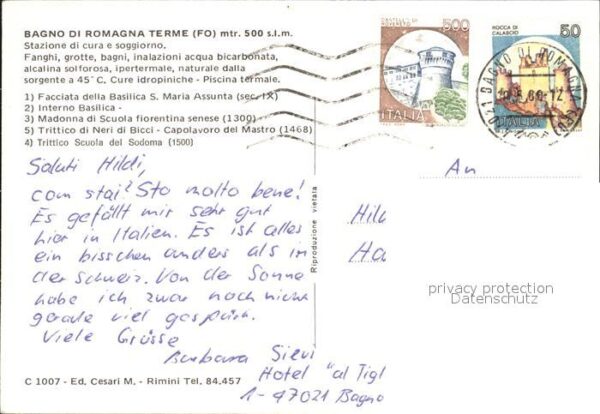 BAGNO DI ROMAGNA TERME (FO) mtr. 500 s.l.m.
Stazione di cura e soggiorno.
Fanghi, grotte, bagni, inalazioni acqua bicarbonata,
alcalina solforosa, ipertermale, naturale dalla
sorgente a 45° C. Cure idropiniche - Piscina termale.
1) Facciata della Basilica S. Maria Assunta (sec. IX)
2) Interno Basilica -
3) Madonna di Scuola fiorentina senese (1300)
5) Trittico di Neri di Bicci - Capolavoro del Mastro (1468)
4) Trittico Scuola del Sodoma (1500)
CASTELLO DI
ROVERETO
500
ITALIA
ROCCA DI
CALASCIO
50
ITALIA
BAGNO DI ROMAGNA
Saluti Hildi,
com stai? Sto molto bene!
Es gefällt mir sehr gut
hier in Italien. Es ist alles
ein bisschen anders als in
der Schweiz. Von der Sonne
habe ich zwar noch nicht
gerade viel gespürt.
Viele Grüsse
Barbara
Hotel "al Tigl
I-47021 Bagno
Riproduzione vietata
An
Hil
Ha
privacy protection
Datenschutz
C 1007 - Ed. Cesari M. - Rimini Tel. 84.457